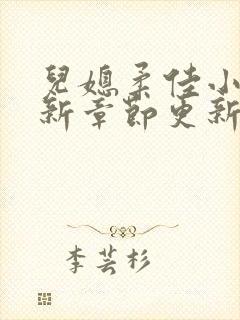 兒媳柔佳小
新章節更新
李芸杉